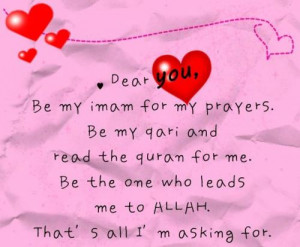 Dear you,
Be my imam for my prayers.
Be my qari and
read the quran for me.
Be the one who leads
me to ALLAH.
That's all I'm asking for.